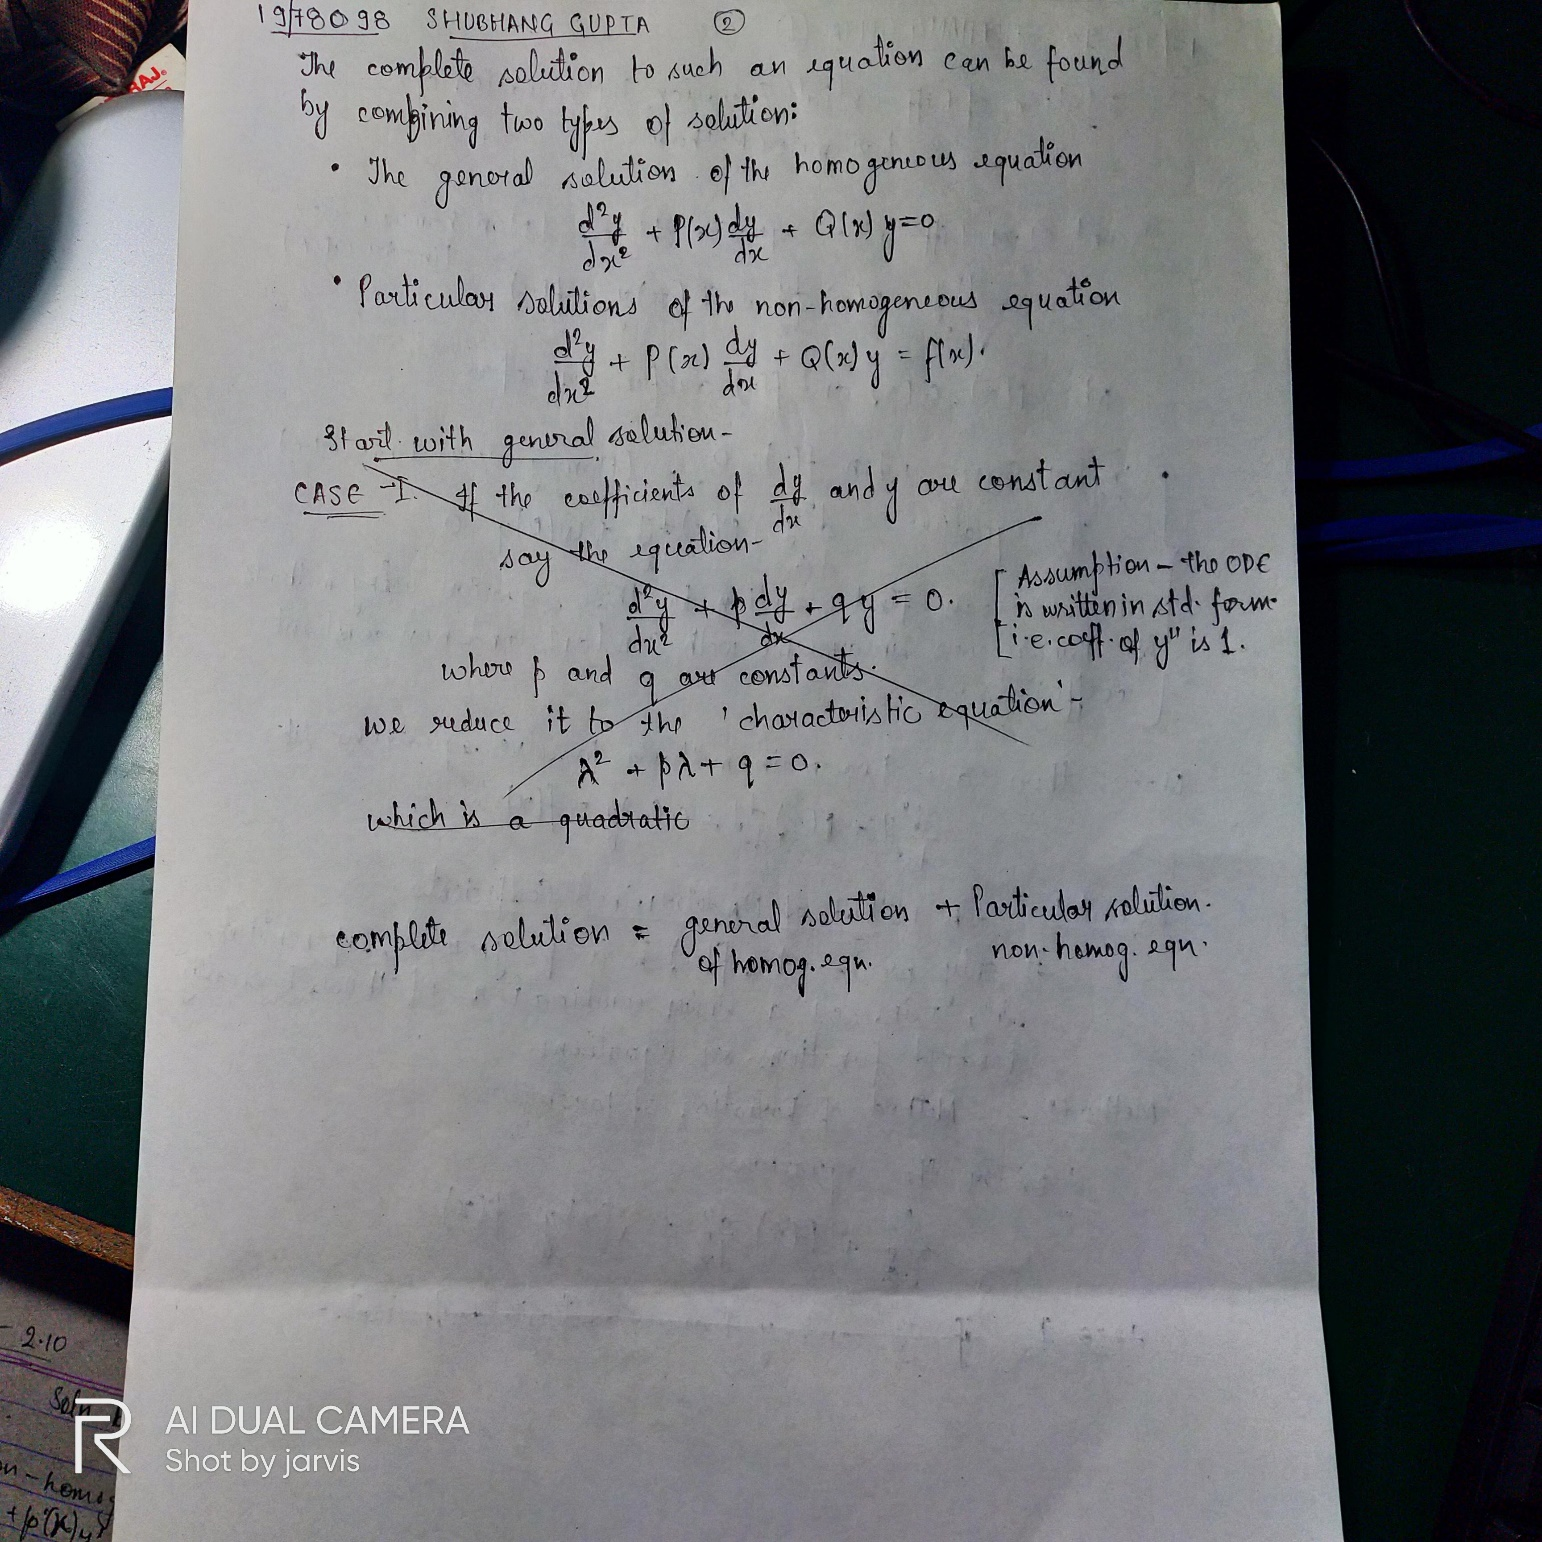 19/78098 SHUBHANG GUPTA ②
The complete solution to such an equation can be found
by combining two types of solution:
• The general solution of the homogeneous equation
d²y/dx² + P(x) dy/dx + Q(x) y = 0
• Particular solutions of the non-homogeneous equation
d²y/dx² + P(x) dy/dx + Q(x) y = f(x).
Start with general solution-
CASE-I. If the coefficients of dy/dx and y are constant
say the equation-
d²y/dx² + p dy/dx + qy = 0.
[Assumption - the ODE
is written in std. form.
i.e. coff. of y" is 1.
where p and q are constants.
we reduce it to the 'characteristic equation'-
λ² + pλ + q = 0.
which is a quadratic
complete solution = general solution + Particular solution.
of homog. eqn. non-homog. eqn.
RAJ.
2.10
Soln
on-homog
+ p(x)y
R AI DUAL CAMERA
Shot by jarvis